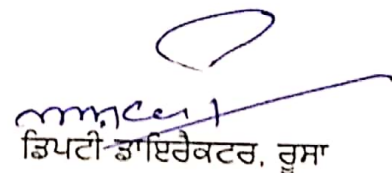 ਡਿਪਟੀ ਡਾਇਰੈਕਟਰ, ਰੂਸਾ